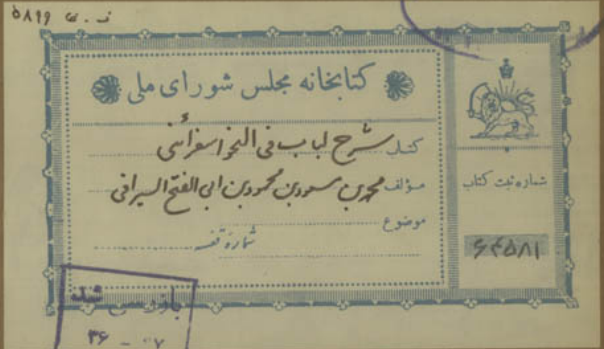 ف. ۵۸۹۹
کتابخانه مجلس شورای ملی
کتاب شرح لباب فی النحو اسفرائنی
مؤلف محمد بن مسعود بن محمود بن ابی الفتح السیرافی
موضوع
شماره قفسه
شماره ثبت کتاب
۶۴۵۸۱
شد
۳۶ -